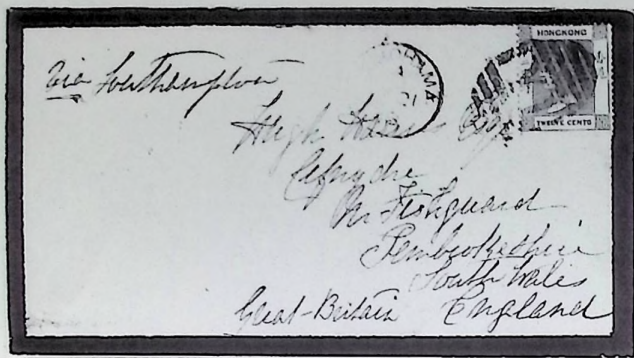 HONGKONG
TWELVE CENTS
via Southampton
Hugh
Nr Fishguard
Pembrokeshire
South Wales
Great-Britain England